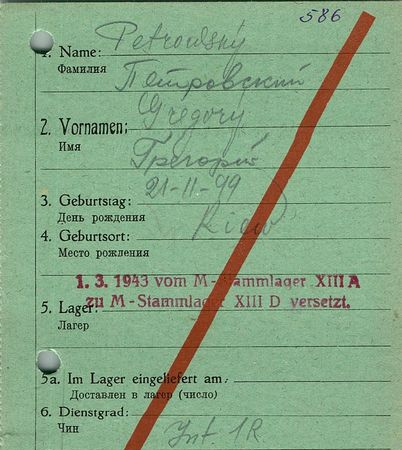 586
1. Name: Petrowsky
Фамилия Петровский
Gregory
2. Vornamen:
Имя Грегорий
21-11-99
3. Geburtstag:
День рождения
4. Geburtsort: Kiew
Место рожления
1. 3. 1943 vom M-Stammlager XIII A
zu M-Stammlager XIII D versetzt.
5. Lager:
Лагер
5a. Im Lager eingeliefert am:
Доставлен в лагер (число)
6. Dienstgrad:
Чин Int. 1R